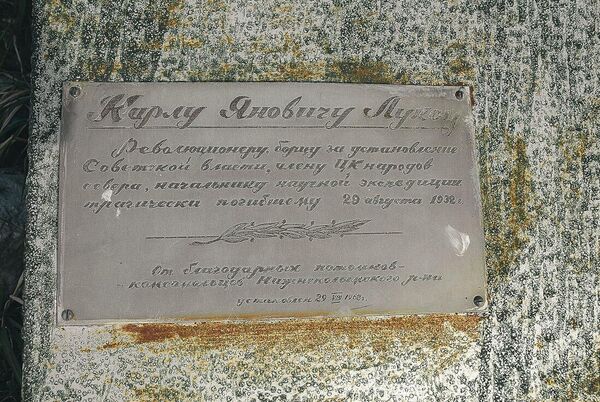 Карлу Яновичу Луксу
Революционеру, борцу за установление
Советской власти, члену ЦК народов
севера, начальнику научной экспедиции
трагически погибшему 29 августа 1932 г.
От благодарных потомков-
-комсомольцев Нижнеколымского р-на
установлен 29 VIII 1968 г.